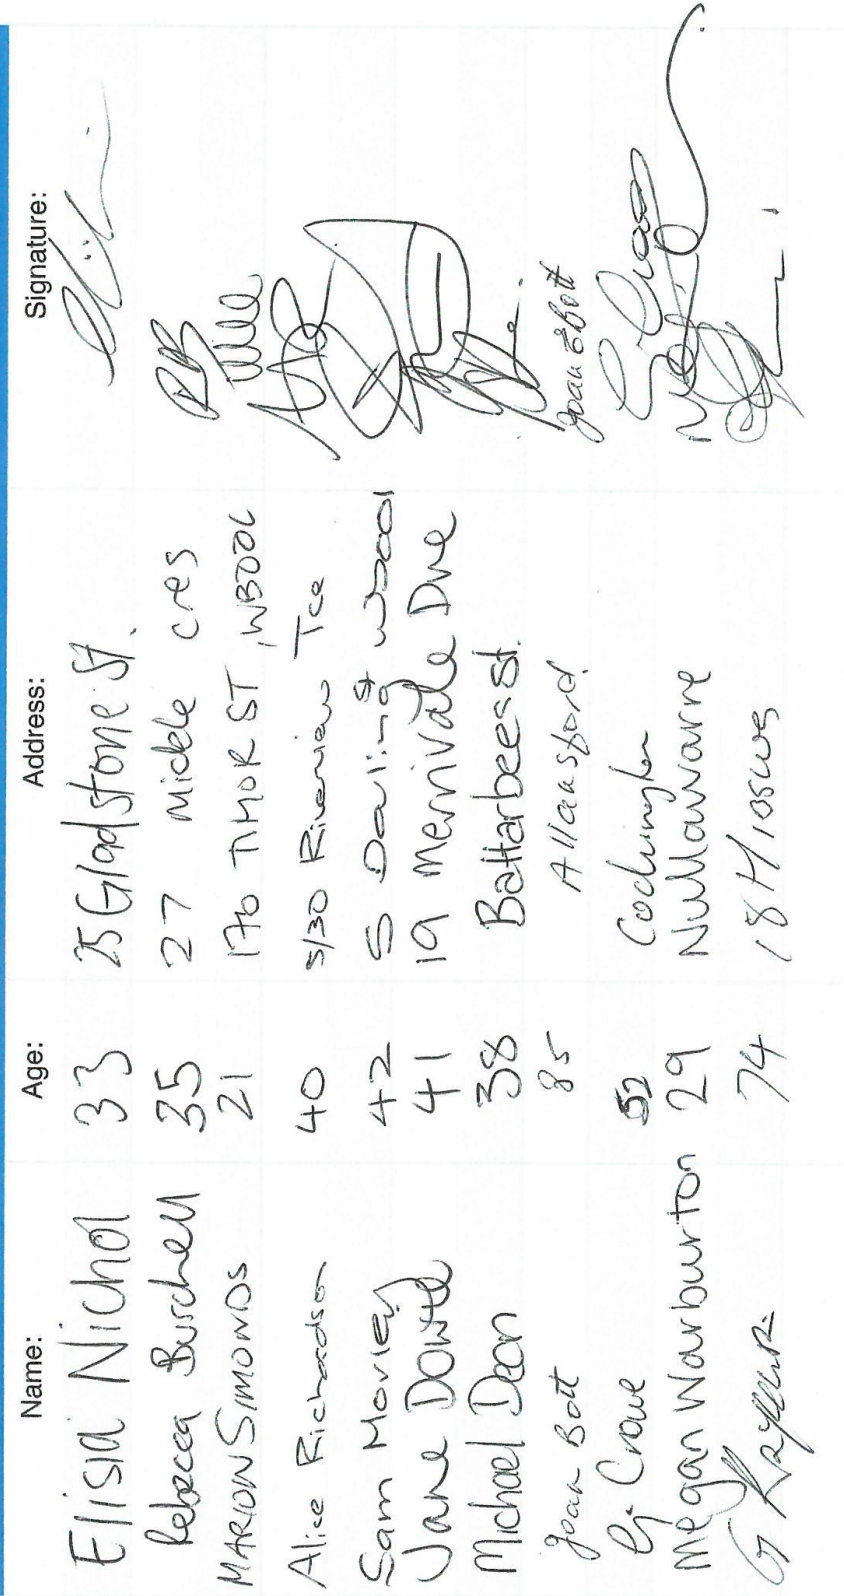 Name: Age: Address: Signature:
Elisia Nichol 33 25 Gladstone St.
Rebecca Burchell 35 27 Middle cres RB
MARION SIMONDS 21 176 TIMOR ST, WBOOL
Alice Richardson 40 5/30 Riverview Tce
Sam Morley 42 5 Darling St W'bool
Jane Dowte 41 19 Merrivale Drve
Michael Dean 38 Battarbees St.
Joan Bott 85 Allansford Joan E Bott
G. Crowe 52 Cudgee G Crowe
Megan Warburton 29 Nullawarre
G 74 18 Hi